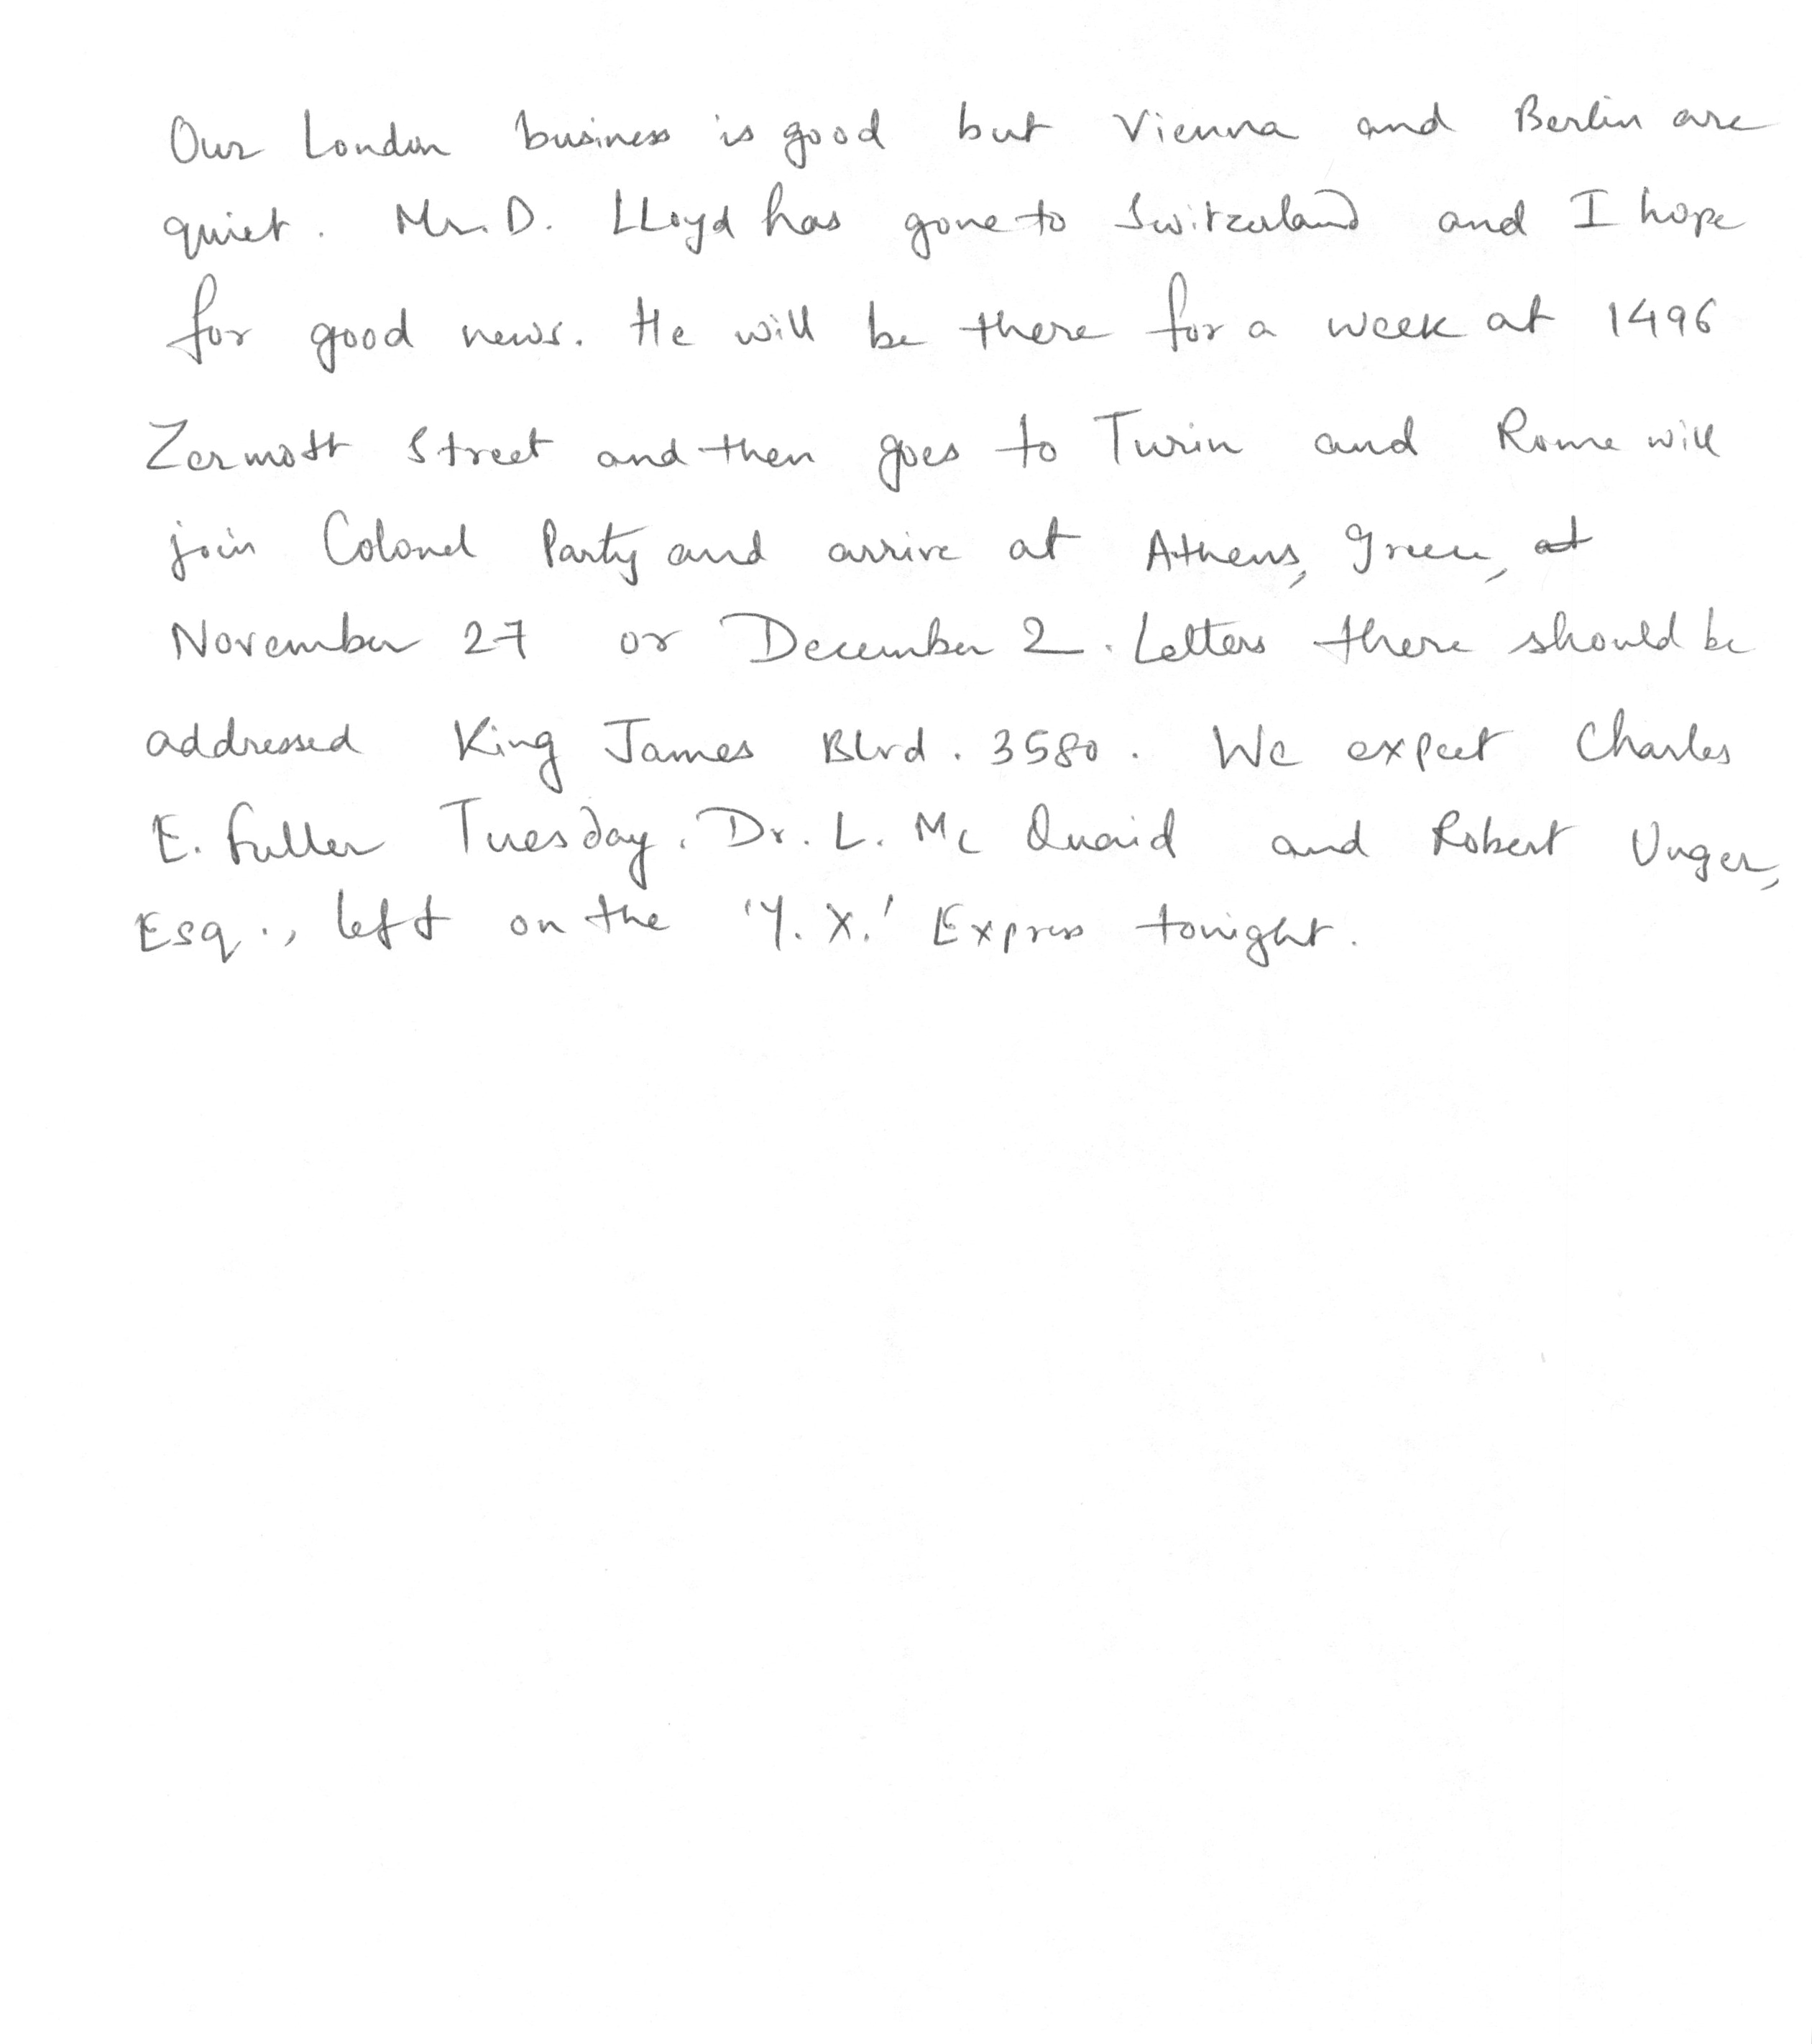 Our London business is good but Vienna and Berlin are
quiet. Mr. D. LLoyd has gone to Switzerland and I hope
for good news. He will be there for a week at 1496
Zermott Street and then goes to Turin and Rome will
join Colonel Party and arrive at Athens, Greece, at
November 27 or December 2. Letters there should be
addressed King James Blvd. 3580. We expect Charles
E. Fuller Tuesday. Dr. L. Mc Quaid and Robert Unger,
Esq., left on the 'Y. X.' Express tonight.